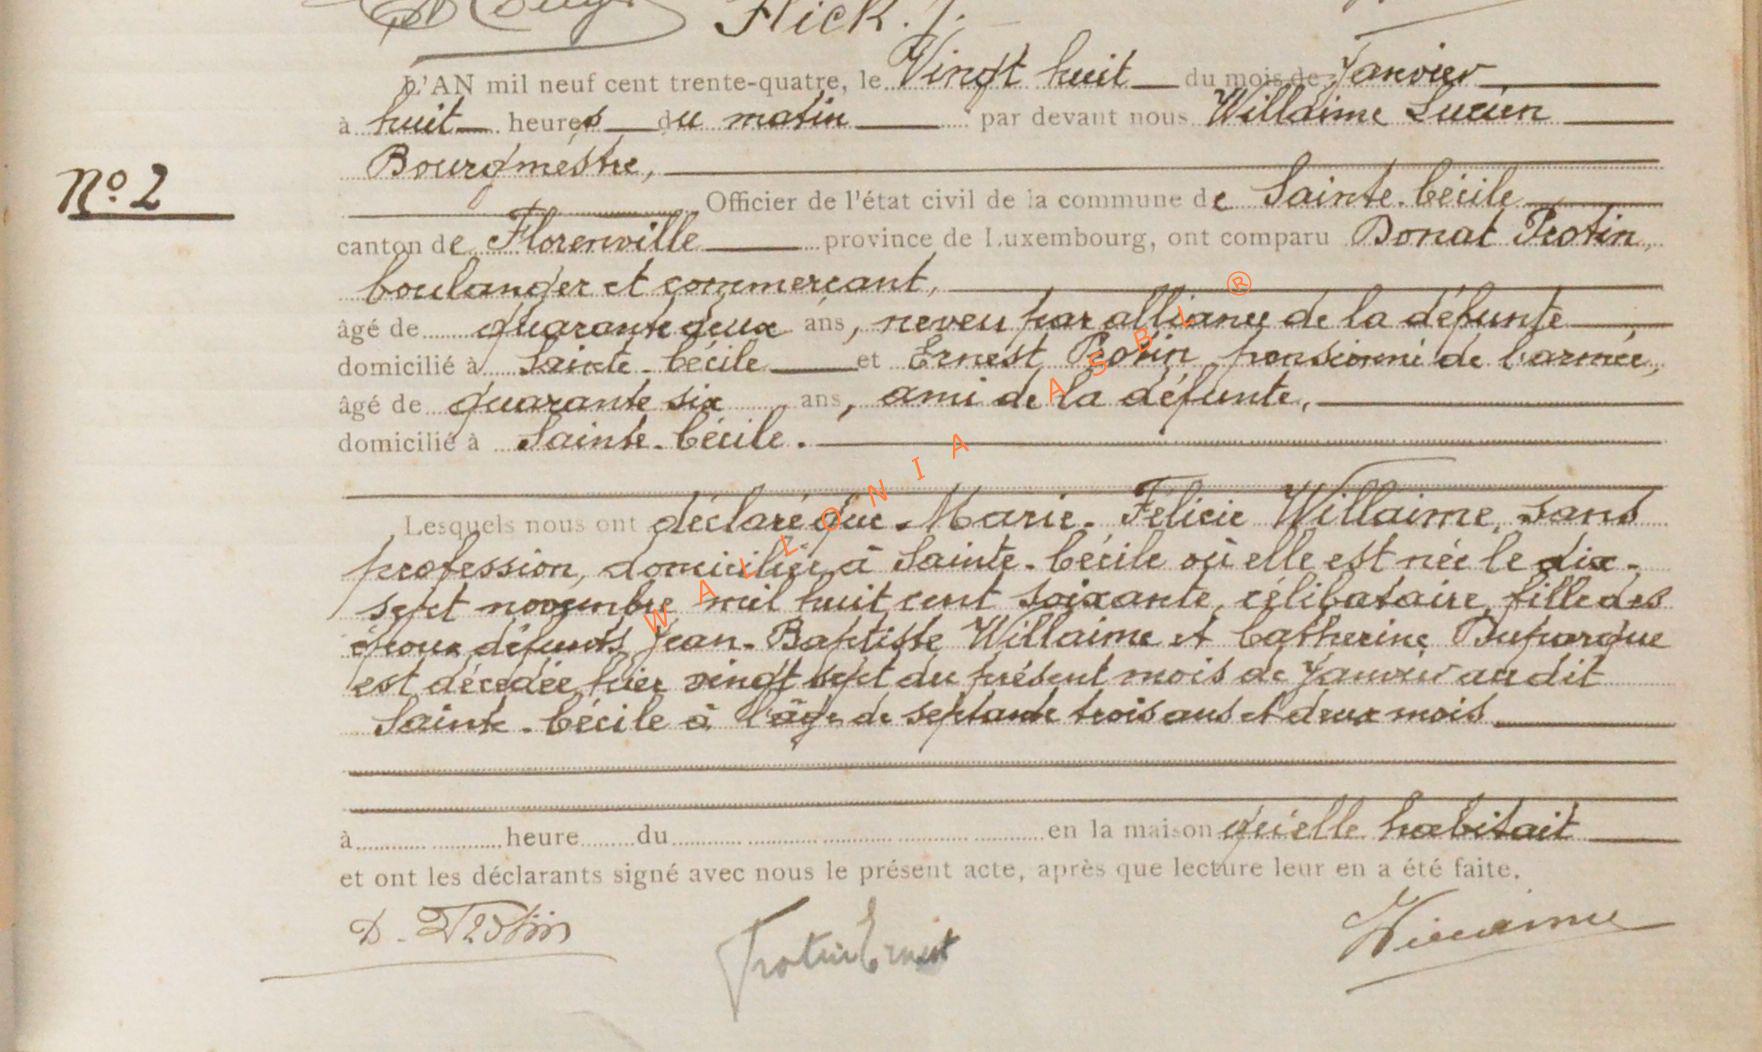 Flick. J.
L'AN mil neuf cent trente-quatre, le Vingt huit du mois de Janvier
à huit heures du matin par devant nous Willaime Lucien
Bourgmestre,
N° 2
Officier de l'état civil de la commune de Sainte-Cécile
canton de Florenville province de Luxembourg, ont comparu Donat Protin,
boulanger et commerçant,
âgé de quarante deux ans, neveu par alliance de la défunte
domicilié à Sainte-Cécile et Ernest Protin, pensionné de l'armée,
âgé de quarante six ans, ami de la défunte,
domicilié à Sainte-Cécile.
Lesquels nous ont déclaré que Marie-Félicie Willaime, sans
profession, domiciliée à Sainte-Cécile où elle est née le dix-
sept novembre mil huit cent soixante, célibataire, fille des
époux défunts Jean-Baptiste Willaime et Catherine Duparque
est décédée hier vingt sept du présent mois de Janvier audit
Sainte-Cécile à l'âge de septante trois ans et deux mois
à heure du en la maison qu'elle habitait
et ont les déclarants signé avec nous le présent acte, après que lecture leur en a été faite.
D. Protin Protin Ernest Willaime
WALLONIA ASBL ®